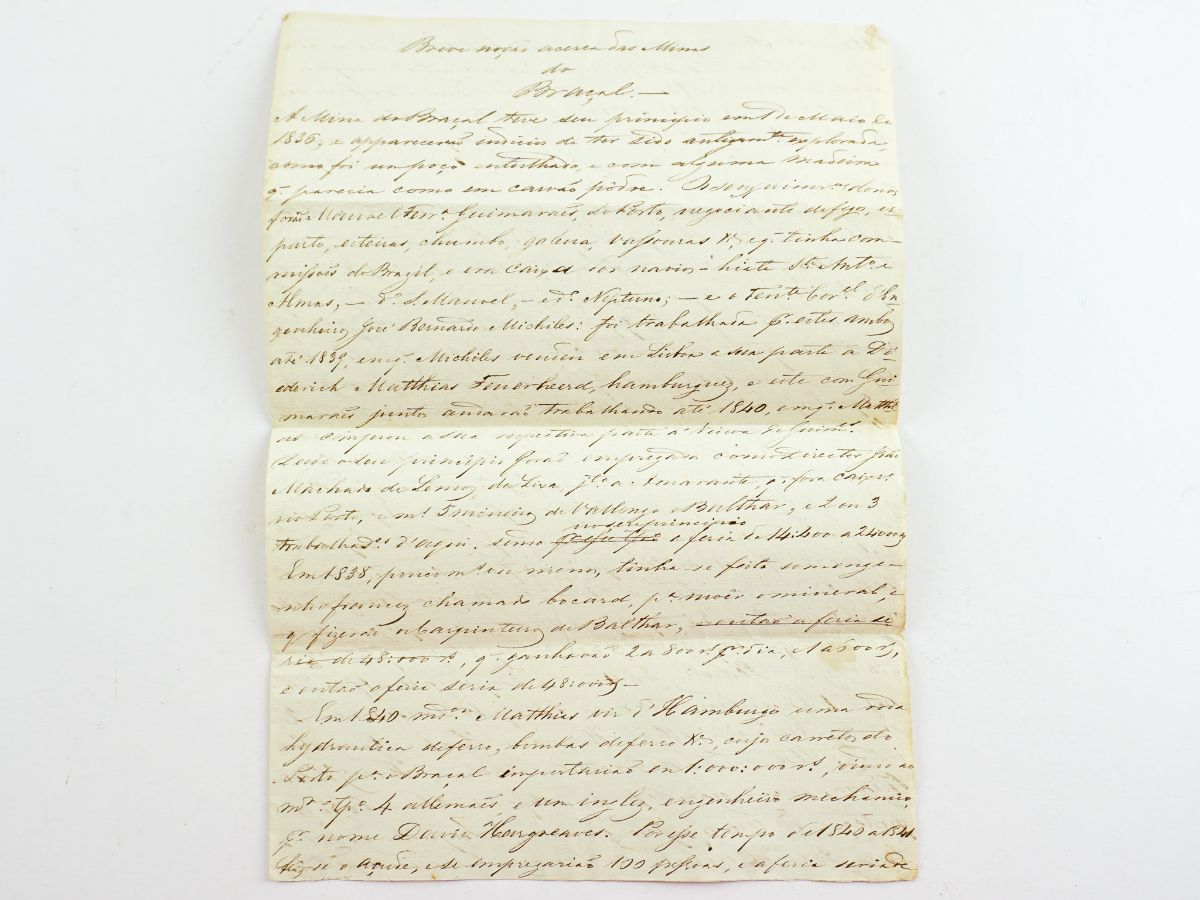 Breve noção acerca das Minas
do
Braçal. —
A Mina do Braçal teve seu principio em 1 de Maio de
1836, e apparecerão indicios de ter sido antigamte. explorada
como foi um poço entulhado, e com alguma madeira
q. parecia como em carvão pôdre. Os seus primros. donos
forão Manoel Ferra. Guimarães, do Porto, negociante de figos, es-
parto, esteiras, chumbo, galena, vassouras &, e q. tinha com-
missões do Brazil, e era caixa dos navios — hiate Sto. Anto. e
Almas, — do. S. Manoel, — e do. Neptuno; — e o Tente. Corel. d'En-
genheiros José Bernardo Michiles: foi trabalhada pr. estes ambos
até 1839, em q. Michiles vendeu em Lisboa a sua parte a Di-
ederich Matthias Feuerheerd, hamburguez, e este com Gui-
marães juntos andarão trabalhando até 1840, em q. Matthi-
as comprou a sua respectiva parte á Viuva de Guimes.
Desde o seu principio forão empregados como director João
Machado de Lemos, da Lixa, jto. a Amarante, q. fora caixro.
no Porto, e ms. 7 mineiros de Vallongo e Balthar, e 2 ou 3
trabalhadres. d'aqui, sendo no seu principio a feria de 14:400 a 24000 rs
Em 1838, pouco ms. ou menos, tinha-se feito um enge-
nho francez chamado bocard, pa. moêr o mineral, e
q. fizerão os Carpinteiros de Balthar, e então a feria se
ria de 48:000 rs., q. ganhavão 2 a 800 rs. pr. dia, e 1 a 600 rs,
e então a feria seria de 48:000 rs —
Em 1840 mdou. Matthias vir d'Hamburgo uma roda
hydraulica de ferro, bombas de ferro &, cujos carretos do
Porto pa. o Braçal importarião en 1:000:000 rs., vindo ao
mmo. tpo. 4 allemães e um inglez, engenheiro mechanico,
pr. nome David Hargreaves. Por esse tempo de 1840 a 1841
fez-se o açude, e se empregarião 100 pessoas, e a feria seria de